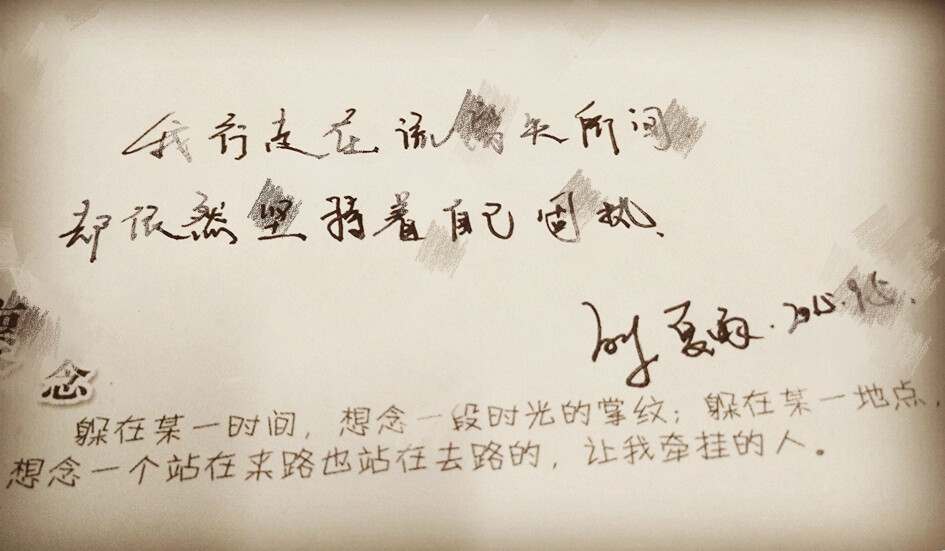 我行走在流离失所间
却依然坚持着自己固执、
夏雨.2015.9.5.
念
躲在某一时间,想念一段时光的掌纹;躲在某一地点,
想念一个站在来路也站在去路的,让我牵挂的人。